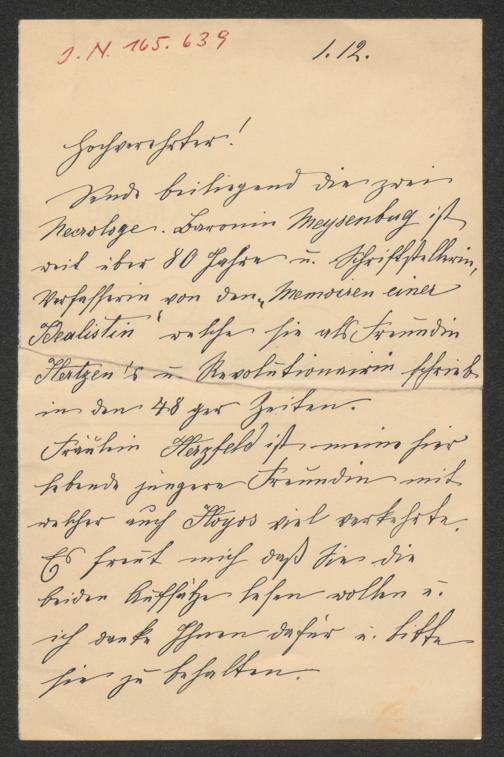 J. N. 165.639
1.12.
Hochverehrter!
Sende beiliegend die zwei
Necrologe. Baronin Meysenbug ist
weit über 80 Jahre u. Schriftstellerin,
Verfasserin von den „Memoiren einer
Idealistin" welche sie als Freundin
Hertzen's u. Revolutionairin schrieb
in den 48ger Zeiten.
Fräulein Herzfeld ist meine hier
lebende jüngere Freundin mit
welcher auch Hoyos viel verkehrte.
Es freut mich daß Sie die
beiden Aufsätze lesen wollen u.
ich danke Ihnen dafür u. bitte
sie zu behalten.